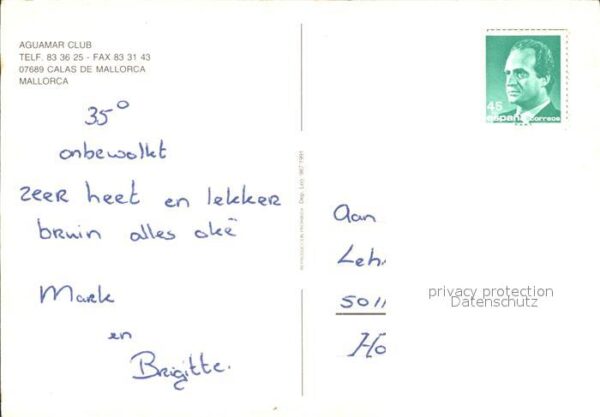 AGUAMAR CLUB
TELF. 83 36 25 - FAX 83 31 43
07689 CALAS DE MALLORCA
MALLORCA
35°
onbewolkt
zeer heet en lekker
bruin alles oké
Mark
en
Brigitte.
45
españa correos
Dep. Leg. 967-1991
Aan
Leh
5011
Ho
privacy protection
Datenschutz